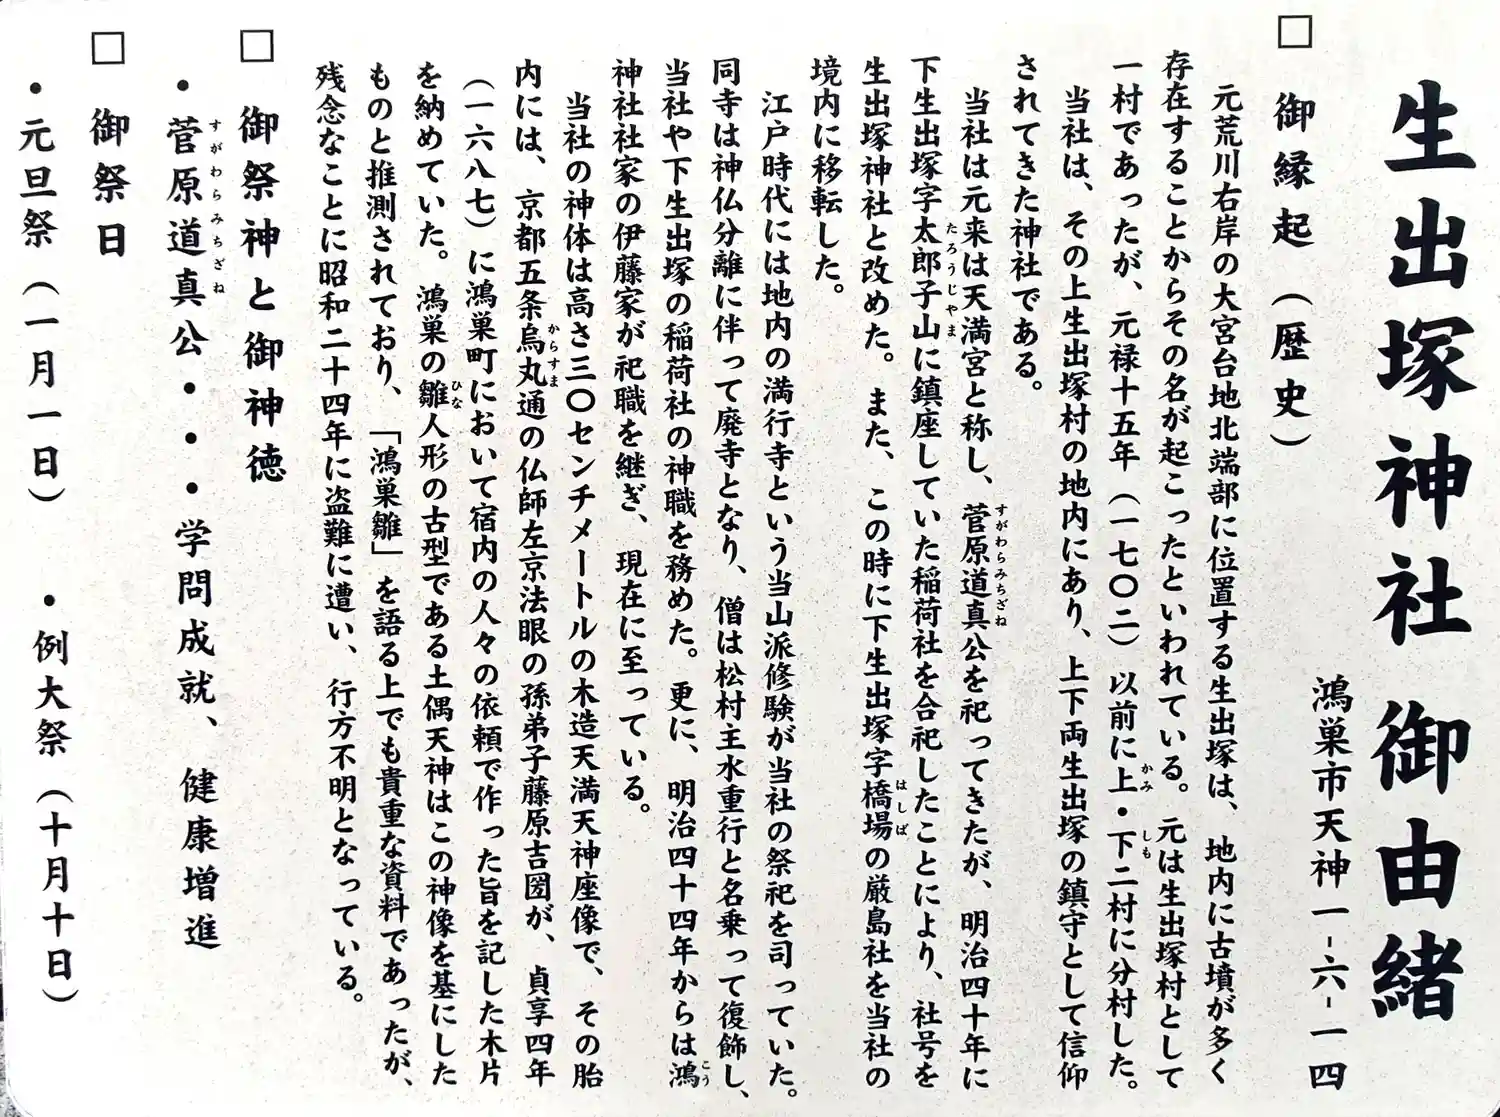 生出塚神社 御由緒
鴻巣市天神一-六-一四
□ 御縁起（歴史）
元荒川右岸の大宮台地北端部に位置する生出塚は、地内に古墳が多く
存在することからその名が起こったといわれている。元は生出塚村として
一村であったが、元禄十五年（一七〇二）以前に上・下二村に分村した。
かみ しも
当社は、その上生出塚村の地内にあり、上下両生出塚の鎮守として信仰
されてきた神社である。
当社は元来は天満宮と称し、菅原道真公を祀ってきたが、明治四十年に
すがわらみちざね
下生出塚字太郎子山に鎮座していた稲荷社を合祀したことにより、社号を
たろうじやま
生出塚神社と改めた。また、この時に下生出塚字橋場の厳島社を当社の
はしば
境内に移転した。
江戸時代には地内の満行寺という当山派修験が当社の祭祀を司っていた。
同寺は神仏分離に伴って廃寺となり、僧は松村王水重行と名乗って復飾し、
当社や下生出塚の稲荷社の神職を務めた。更に、明治四十四年からは鴻
こう
神社社家の伊藤家が祀職を継ぎ、現在に至っている。
当社の神体は高さ三〇センチメートルの木造天満天神座像で、その胎
内には、京都五条烏丸通の仏師左京法眼の孫弟子藤原吉圀が、貞享四年
からすま
（一六八七）に鴻巣町において宿内の人々の依頼で作った旨を記した木片
を納めていた。鴻巣の雛人形の古型である土偶天神はこの神像を基にした
ひな
ものと推測されており、「鴻巣雛」を語る上でも貴重な資料であったが、
残念なことに昭和二十四年に盗難に遭い、行方不明となっている。
□ 御祭神と御神徳
・菅原道真公・・・学問成就、健康増進
すがわらみちざね
□ 御祭日
・元旦祭（一月一日） ・例大祭（十月十日）